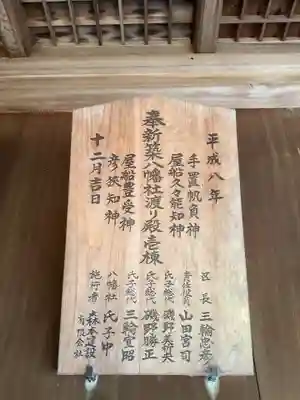 平成八年
手置帆負神
屋船久々能知神
奉新築八幡社渡り殿壱棟
屋船豊受神
彦狭知神
十二月吉日
区長 三輪忠彦
責任役員 山田宮司
氏子総代 磯野美和夫
氏子総代 磯野勝正
氏子総代 三輪宣昭
八幡社 氏子中
施行者 森本建設
有限会社